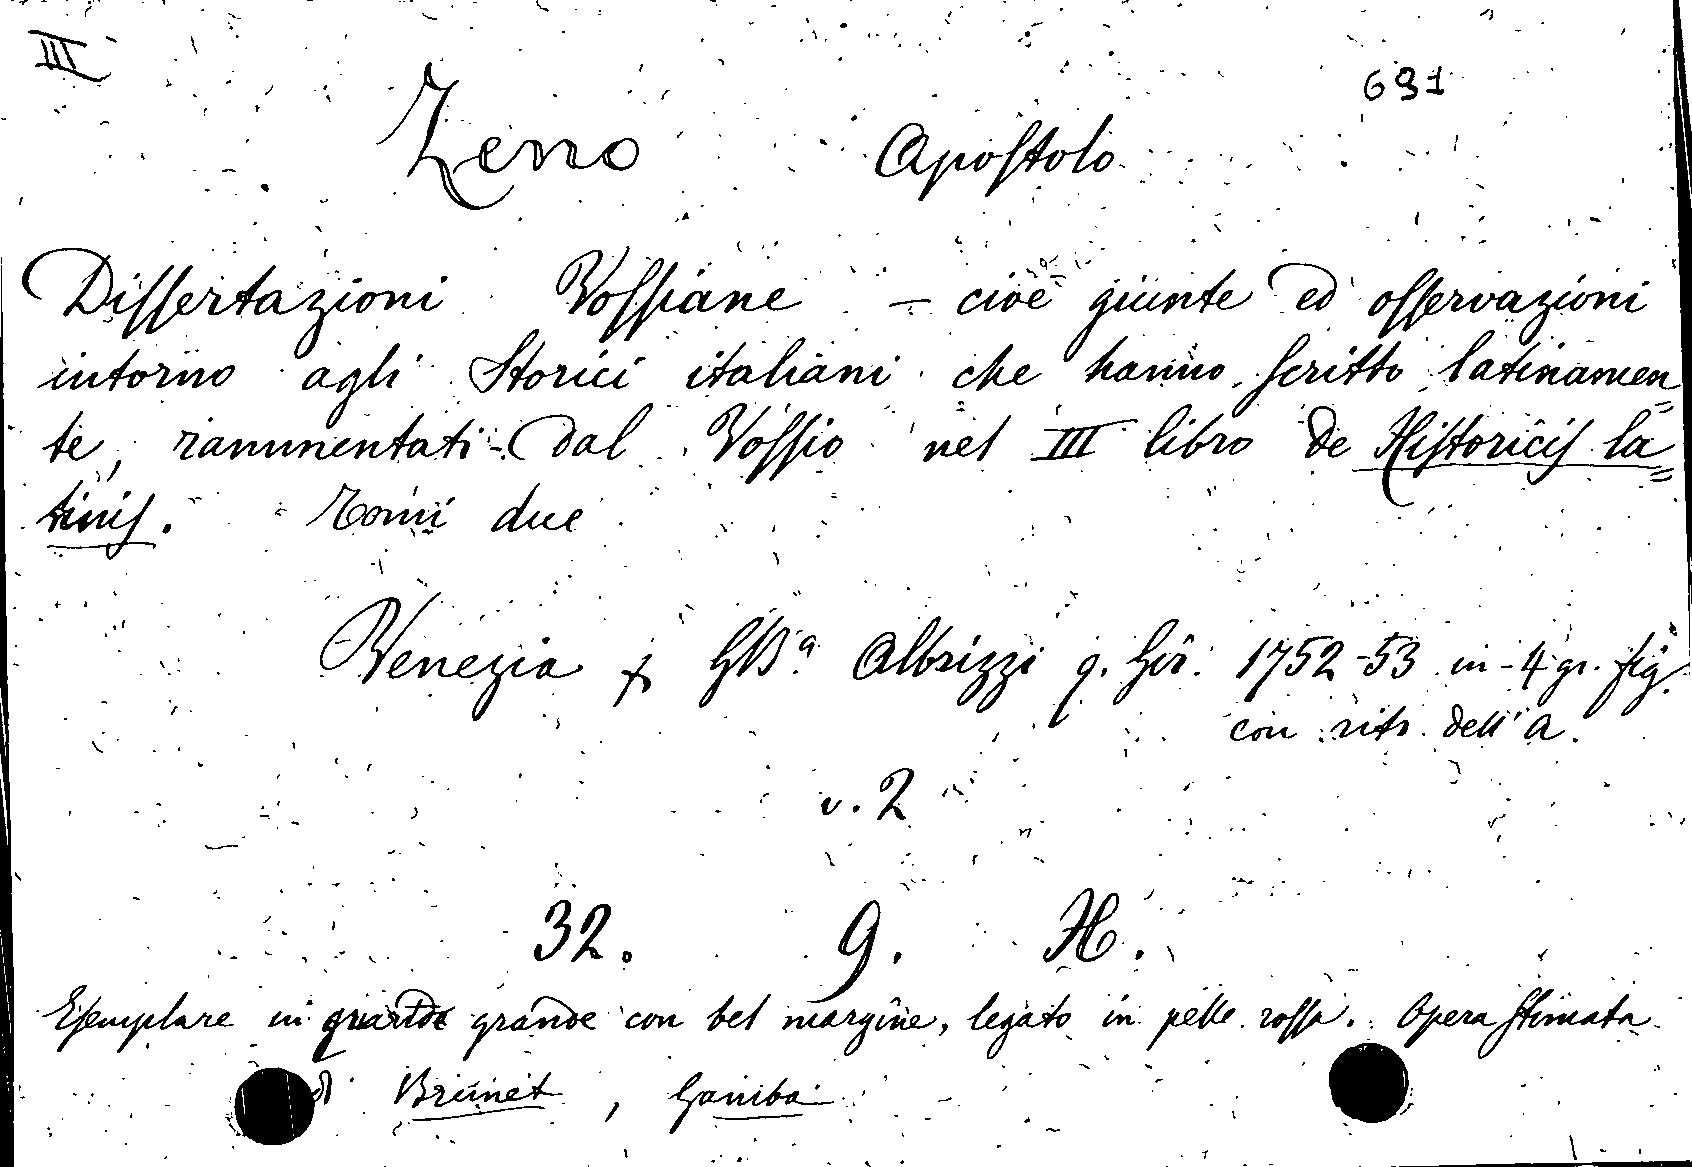 III
691
Zeno Apostolo
Dissertazioni Vossiane – cioè giunte ed osservazioni
intorno agli Storici italiani che hanno scritto latinamen=
te, rammentati dal Vossio nel III libro de Historicis la=
tinis. Tomi due
Venezia x GBa Albrizzi q. Gir. 1752-53 in-4 gr. fig.
con ritr. dell'A.
v. 2
32. 9. H.
Esemplare in quarto grande con bel margine, legato in pelle rossa. Opera stimata
Brunet, Gamba